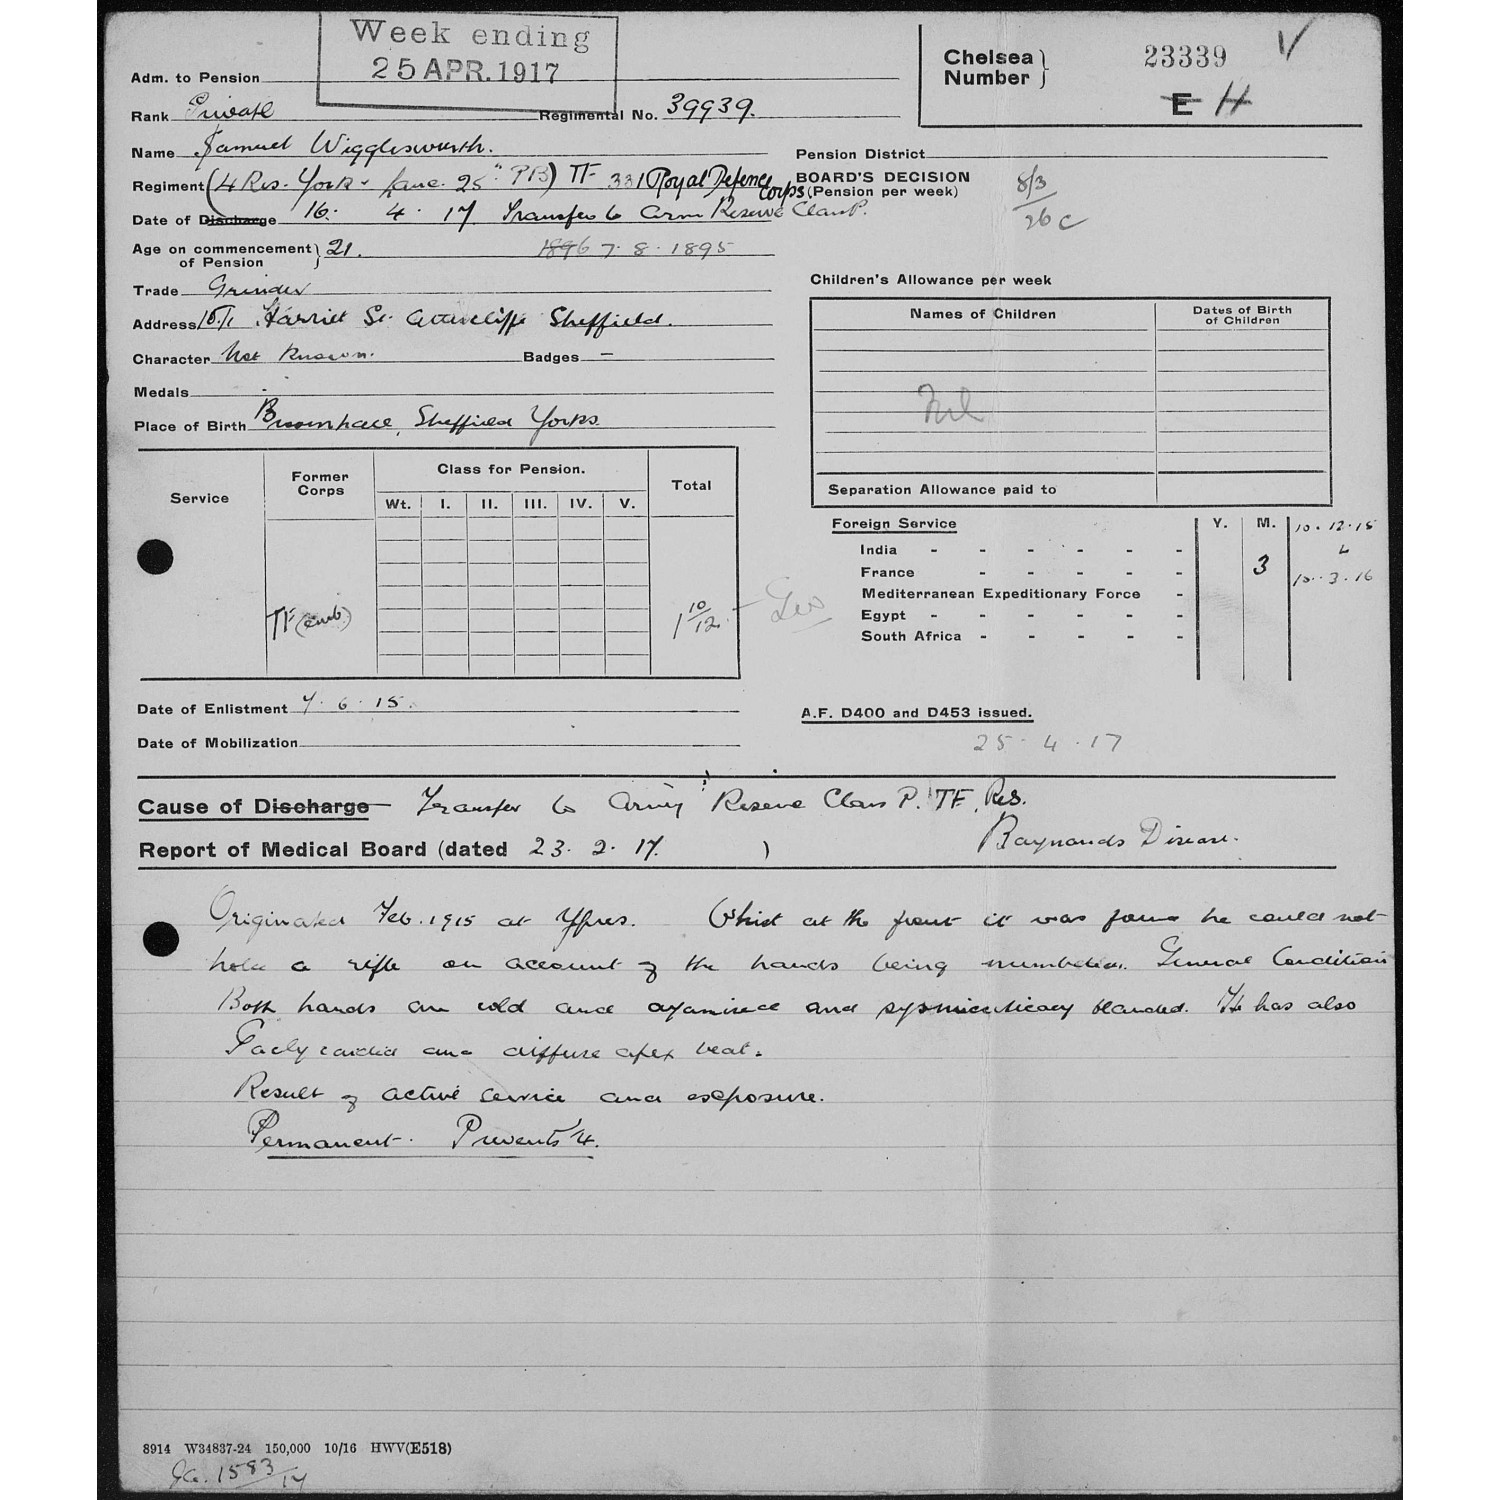 Week ending
25 APR. 1917
Chelsea Number 23339
E H
Adm. to Pension
Rank Private Regimental No. 39939.
Name Samuel Wigglesworth.
Pension District
Regiment (4 Res. York & Lanc. 25 " PB) TF 331 Royal Defence Corps
BOARD'S DECISION
(Pension per week)
8/3
26 c
Date of Discharge 16. 4. 17 Transfer to Army Reserve Class P.
Age on commencement of Pension 21. 1896 7. 8. 1895
Trade Grinder
Address 10/1 Harriet St. Attercliffe Sheffield.
Character Not Known. Badges —
Medals
Place of Birth Broomhall, Sheffield Yorks.
Children's Allowance per week
Names of Children Dates of Birth of Children
Nil
Separation Allowance paid to
Service Former Corps Class for Pension. Total
Wt. I. II. III. IV. V.
TF (emb) 1 10/12
Foreign Service Y. M.
India
France 3
10.12.15
10.3.16
Mediterranean Expeditionary Force
Egypt
South Africa
Date of Enlistment 7. 6. 15.
Date of Mobilization
A.F. D400 and D453 issued.
25. 4. 17
Cause of Discharge Transfer to Army Reserve Class P. TF, Res.
Report of Medical Board (dated 23. 2. 17. ) Raynauds Disease.
Originated Feb. 1915 at Ypres. Whist at the front it was found he could not
hold a rifle on account of the hands being numbed. General Condition
Both hands are cold and and blanded. He has also
and diffuse apex beat.
Result of active service and exposure.
Permanent. Prevents ¼.
8914 W34837-24 150,000 10/16 HWV(E518)
1583/17